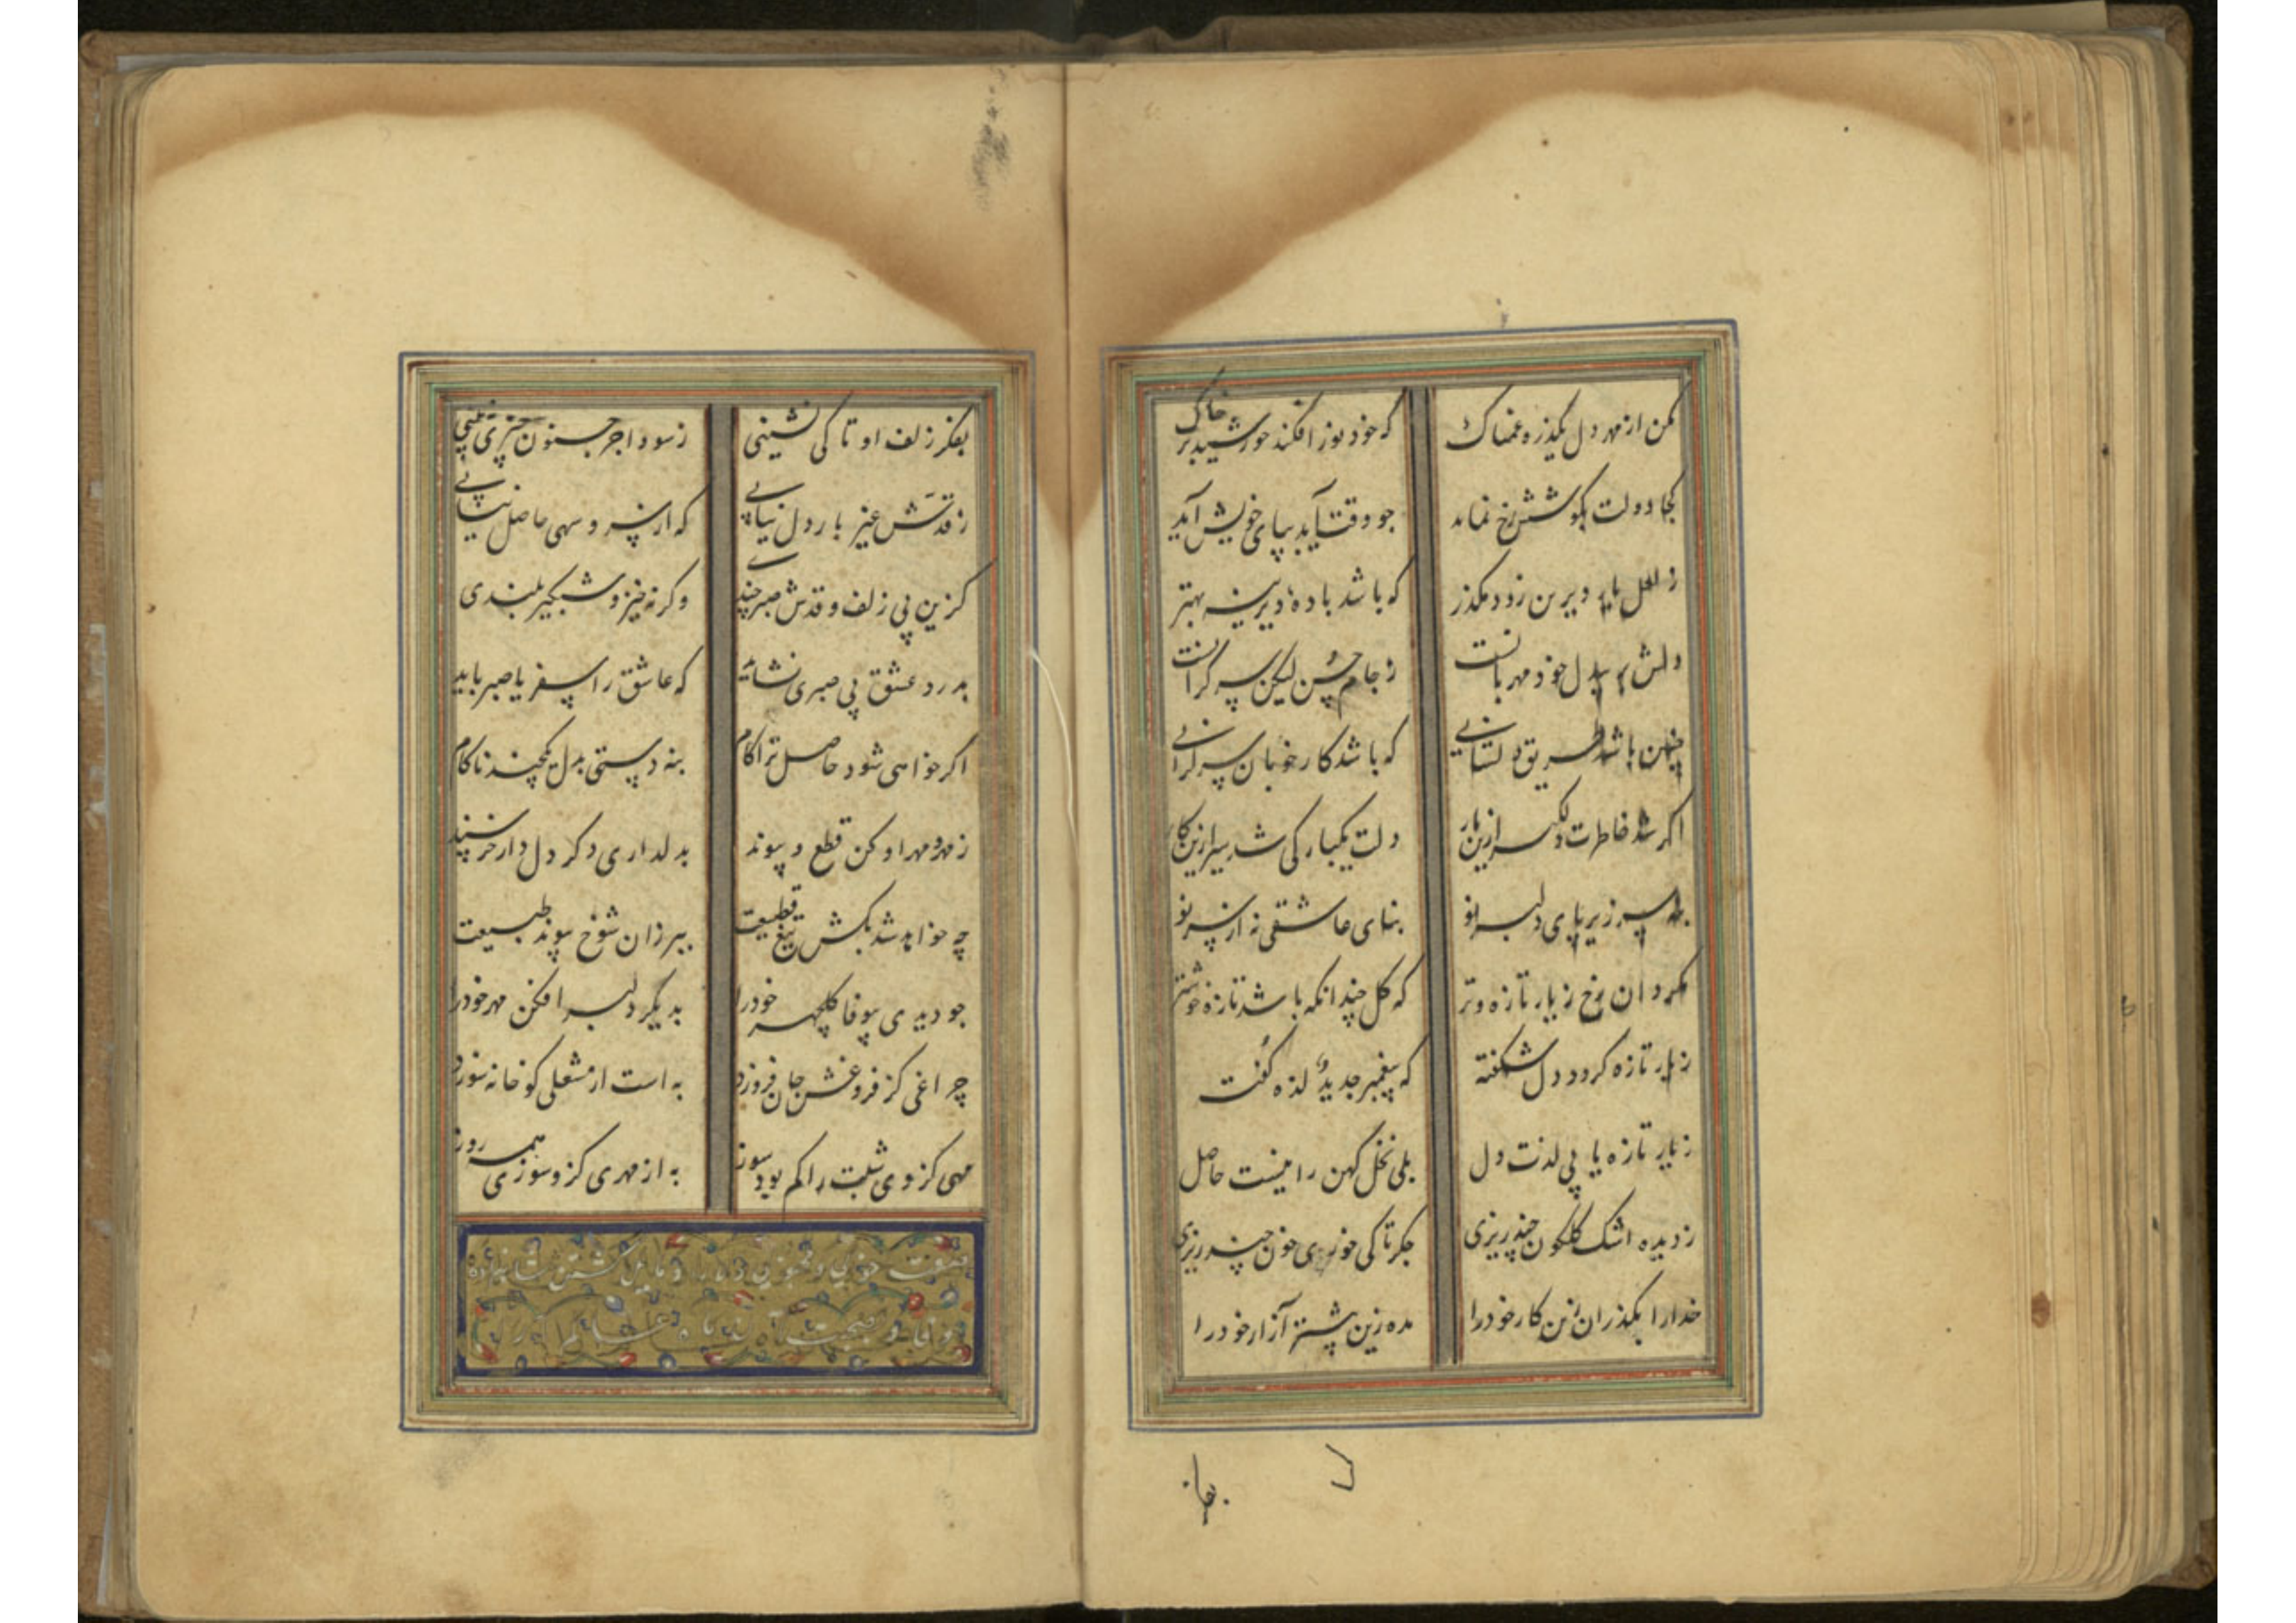 مکن از مهر دل یکذره غمناک که خود نور افکند خورشید بر خاک
کجا دولت بکوشش رخ نماید جو وقت آید بپای خویش آید
ز لعل یار دیرین زود مکذر که باشد باده دیرینه بهتر
دلش بر بیدل خود مهربانست ز جام حسن لیکن سر کرانست
چنین باشد طریق دلستانی که باشد کار خوبان سر کرانی
اکر شد خاطرت دلکیر ازین یار دلت یکبارکی شد سیر ازین کار
بنه سر زیر پای دلبر نو بنای عاشقی نه از سر نو
مکردان رخ ز یار تازه و تر که کل چندانکه باشد تازه خوشتر
ز یار تازه کردد دل شکفته که پیغمبر جدید لذه کفت
ز یار تازه یابی لذت دل بلی نخل کهن را نیست حاصل
ز دیده اشک کلکون چند ریزی جکر تا کی خوری خون چند ریزی
خدارا بکذران زین کار خود را مده زین پیشتر آزار خود را
بفکر زلف او تا کی نشینی ز سودا جز جنون چیزی نبینی
ز قدش غیر بار دل نیابی که از سرو سهی حاصل نیابی
کزین پی زلف و قدش صبر چندی وکرنه خیز و شبکیر بلندی
بدرد عشق بی صبری نشاید که عاشق را سفر یا صبر باید
اکر خواهی شود حاصل ترا کام بنه دستی بدل یکچند ناکام
ز مهر او کن قطع و پیوند بدلداری دکر دل دار خرسند
چه خواهد شد بکش تیغ قطیعت ببر زان شوخ پیوند طبیعت
جو دیدی بیوفا کلچهر خود را بدیکر دلبر افکن مهر خود را
چراغی کز فروغش جان فروزد به است از مشعلی کو خانه سوزد
مهی کز وی شبت را کم بود سوز به از مهری کزو سوزی همه روز